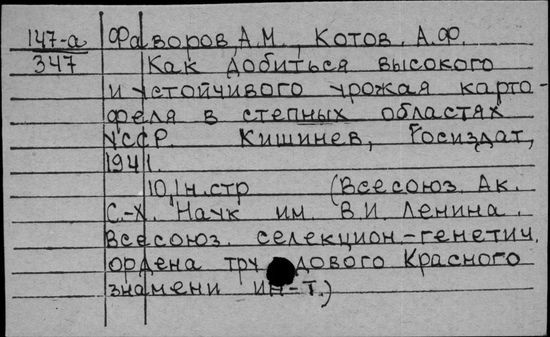 147-а Фаворов, А.М., Котов, А.Ф.
347 Как добиться высокого
и устойчивого урожая карто-
феля в степных областях
УССР. Кишинев, Госиздат,
1941.
10 1н.стр (Всесоюз. Ак.
С.-Х. Наук им. В.И. Ленина.
Всесоюз. селекцион-генетич.
ордена трудового Красного
знамени ин-т.)